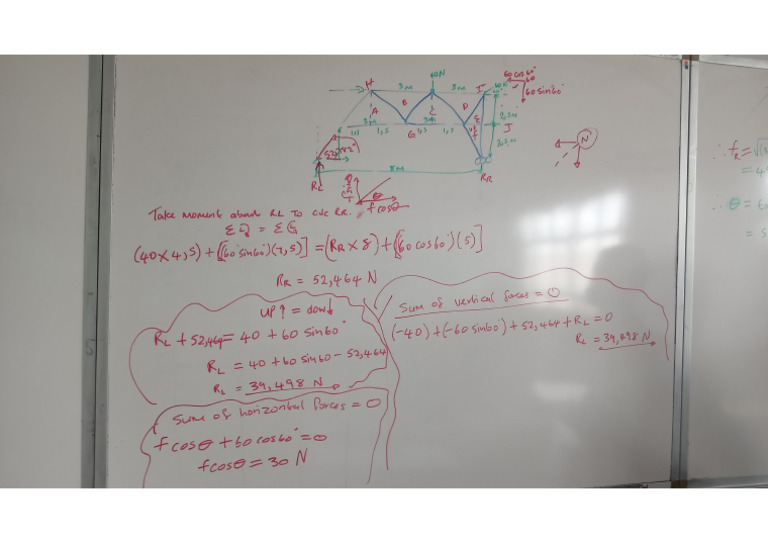 H
3m
60N
3m
I
60cos60°
60
60sin60°
A
B
C
D
E
3m
1,5
G
1,5
J
2,5m
N
52
8m
RL
RR
θ
fcosθ
Take moments about RL To calc RR.
(40x4,5)+[(60sin60°)(7,5)]=(RRx8)+[(60cos60°)(5)]
RR = 52,464 N
up↑ = down↓
RL + 52,464 = 40 + 60 sin60°
RL = 40+60 sin60-52,464
RL = 39,498 N
Sum of vertical forces = 0
(-40)+(-60sin60°)+52,464+RL=0
RL = 39,498 N
Sum of horizontal forces = 0
fcosθ + 60cos60°=0
fcosθ = 30 N
∴ fR = √
∴ θ =